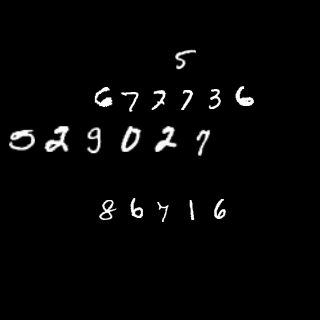 5
677736
529027
86716